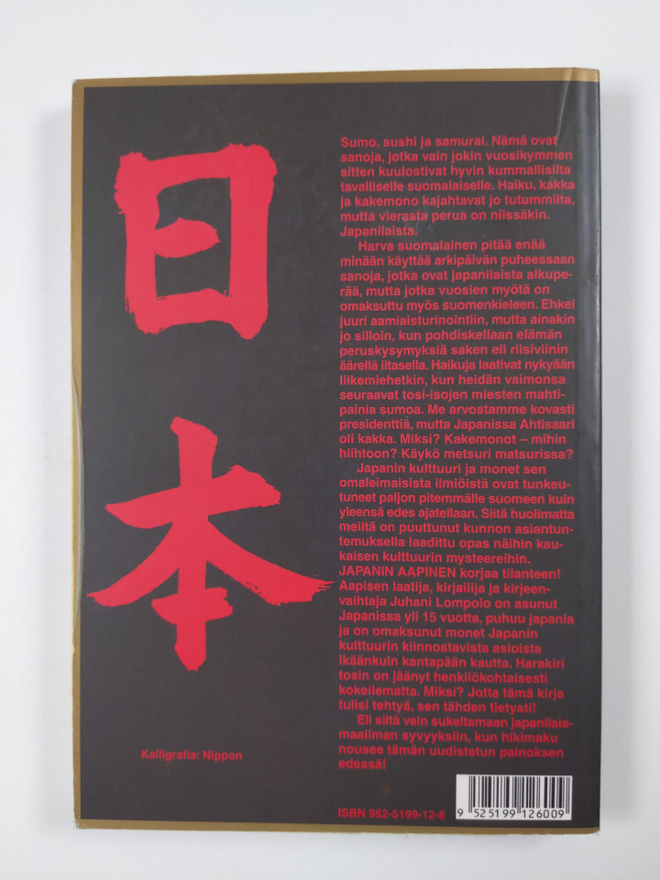 日
本
Kalligrafia: Nippon
Sumo, sushi ja samurai. Nämä ovat
sanoja, jotka vain jokin vuosikymmen
sitten kuulostivat hyvin kummallisilta
tavalliselle suomalaiselle. Haiku, kakka
ja kakemono kajahtavat jo tutummilta,
mutta vierasta perua on niissäkin.
Japanilaista.
Harva suomalainen pitää enää
minään käyttää arkipäivän puheessaan
sanoja, jotka ovat japanilaista alkupe-
rää, mutta jotka vuosien myötä on
omaksuttu myös suomenkieleen. Ehkei
juuri aamiaisturinointiin, mutta ainakin
jo silloin, kun pohdiskellaan elämän
peruskysymyksiä saken eli riisiviinin
äärellä iltasella. Haikuja laativat nykyään
liikemiehetkin, kun heidän vaimonsa
seuraavat tosi-isojen miesten mahti-
painia sumoa. Me arvostamme kovasti
presidenttiä, mutta Japanissa Ahtisaari
oli kakka. Miksi? Kakemonot – mihin
hiihtoon? Käykö metsuri matsurissa?
Japanin kulttuuri ja monet sen
omaleimaisista ilmiöistä ovat tunkeu-
tuneet paljon pitemmälle suomeen kuin
yleensä edes ajatellaan. Siitä huolimatta
meiltä on puuttunut kunnon asiantun-
temuksella laadittu opas näihin kau-
kaisen kulttuurin mysteereihin.
JAPANIN AAPINEN korjaa tilanteen!
Aapisen laatija, kirjailija ja kirjeen-
vaihtaja Juhani Lompolo on asunut
Japanissa yli 15 vuotta, puhuu japania
ja on omaksunut monet Japanin
kulttuurin kiinnostavista asioista
ikäänkuin kantapään kautta. Harakiri
tosin on jäänyt henkilökohtaisesti
kokeilematta. Miksi? Jotta tämä kirja
tulisi tehtyä, sen tähden tietysti!
Eli siitä vain sukeltamaan japanilais-
maailman syvyyksiin, kun hikimaku
nousee tämän uudistetun painoksen
edessä!
ISBN 952-5199-12-6
9 525199 126009